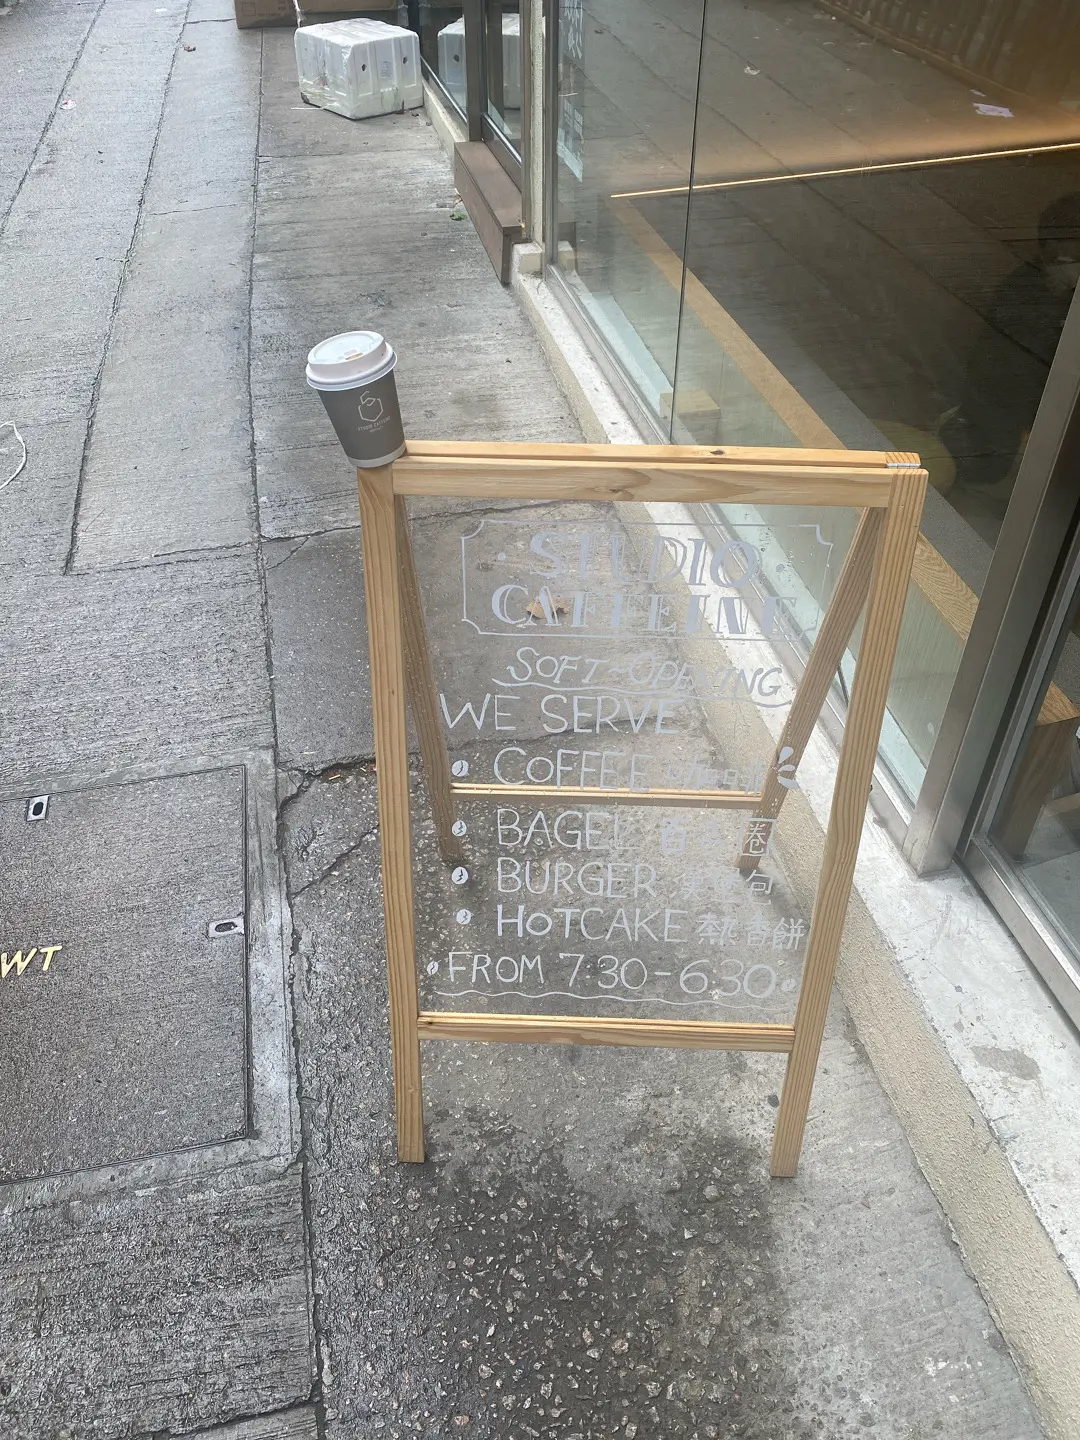 STUDIO
CAFFEINE
SOFT-OPENING
WE SERVE
COFFEE 咖啡
BAGEL 百吉圈
BURGER 漢堡包
HOTCAKE 熱香餅
FROM 7:30-6:30
WT